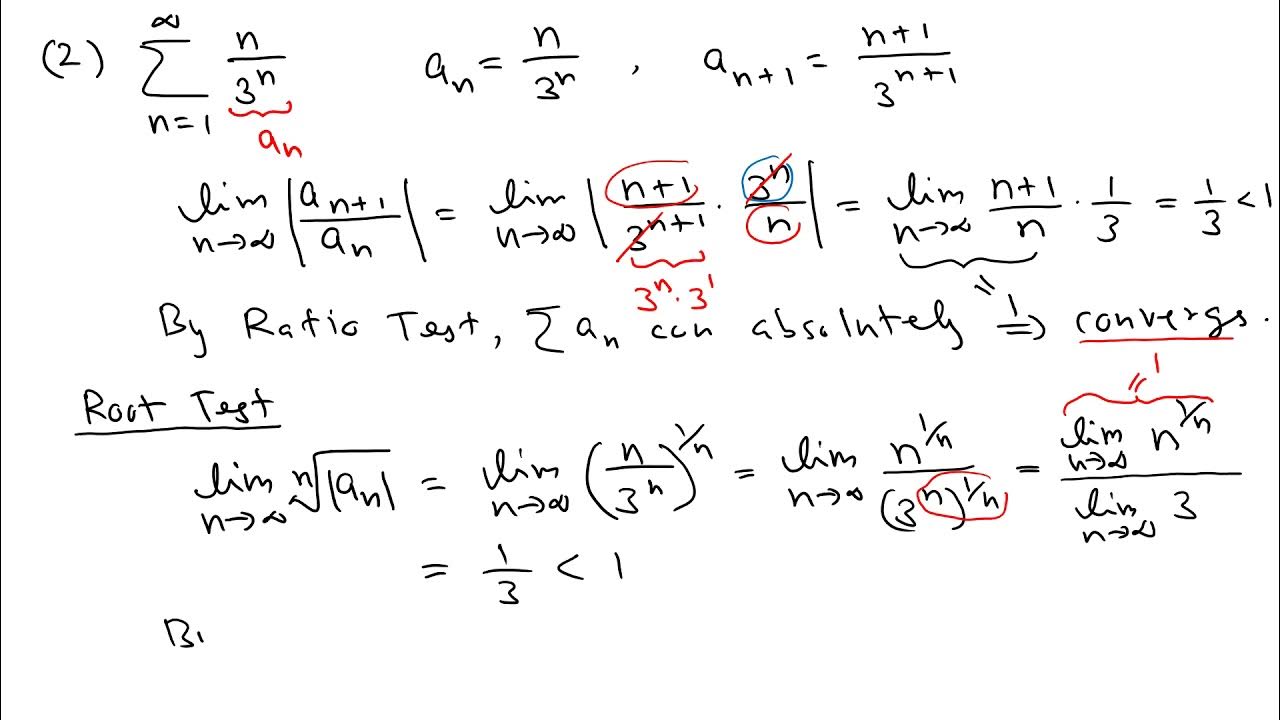 (2) ∑_{n=1}^{∞} n/3ⁿ   aₙ = n/3ⁿ , aₙ₊₁ = (n+1)/3ⁿ⁺¹
aₙ
lim_{n→∞} |aₙ₊₁/aₙ| = lim_{n→∞} |(n+1)/3ⁿ⁺¹ · 3ⁿ/n| = lim_{n→∞} (n+1)/n · 1/3 = 1/3 < 1
3ⁿ·3¹
= 1
By Ratio Test, ∑aₙ con absolutely ⇒ convergs.
Root Test
= 1
lim_{n→∞} ⁿ√|aₙ| = lim_{n→∞} (n/3ⁿ)^{1/n} = lim_{n→∞} n^{1/n}/(3ⁿ)^{1/n} = (lim_{n→∞} n^{1/n})/(lim_{n→∞} 3)
= 1/3 < 1